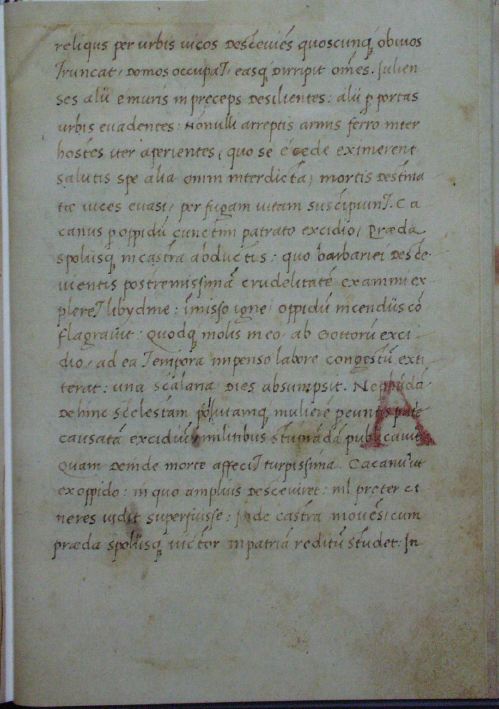 reliqus per urbis vicos desceviēs quoscunq̨ obvios
Truncat, domos occupat, easq̨ dirripit om̄es. Julien
ses alii e muris in preceps desilientes: alii p portas
urbis evadentes: Nōnulli arreptis armis ferro inter
hostes iter aperientes, quo se e cede eximerent
salutis spe alia omni interdicta, mortis destina
tæ vices evasi, per fugam vitam suscipiunt. Ca
canus p oppidū cunctim patrato excidio, præda
spoliisq̨ in castra abductis: quo barbariei desæ
vientis postremissimā crudelitatē examini ex
pleret libydine: īmisso igne, oppidū incendiis cō
flagravit: quodq̨ molis in eo, ab Gottorū exci
dio, ad ea tempora impenso labore congestū exti
terat: una scalaria dies absumpsit.
dehinc scelestam pollutamq̨ mulierē
causatā excidiū militibus publicavit
quam deinde morte affecit turpissima. Cacanus ut
ex oppido: in quo amplius desceviret: nil preter ci
neres vidit superfuisse: Inde castra movēs, cum
præda spoliisq̨ victor in patriā reditū studet: In
A